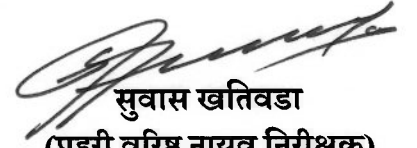 सुवास खतिवडा
(प्रहरी वरिष्ठ नायव निरीक्षक)